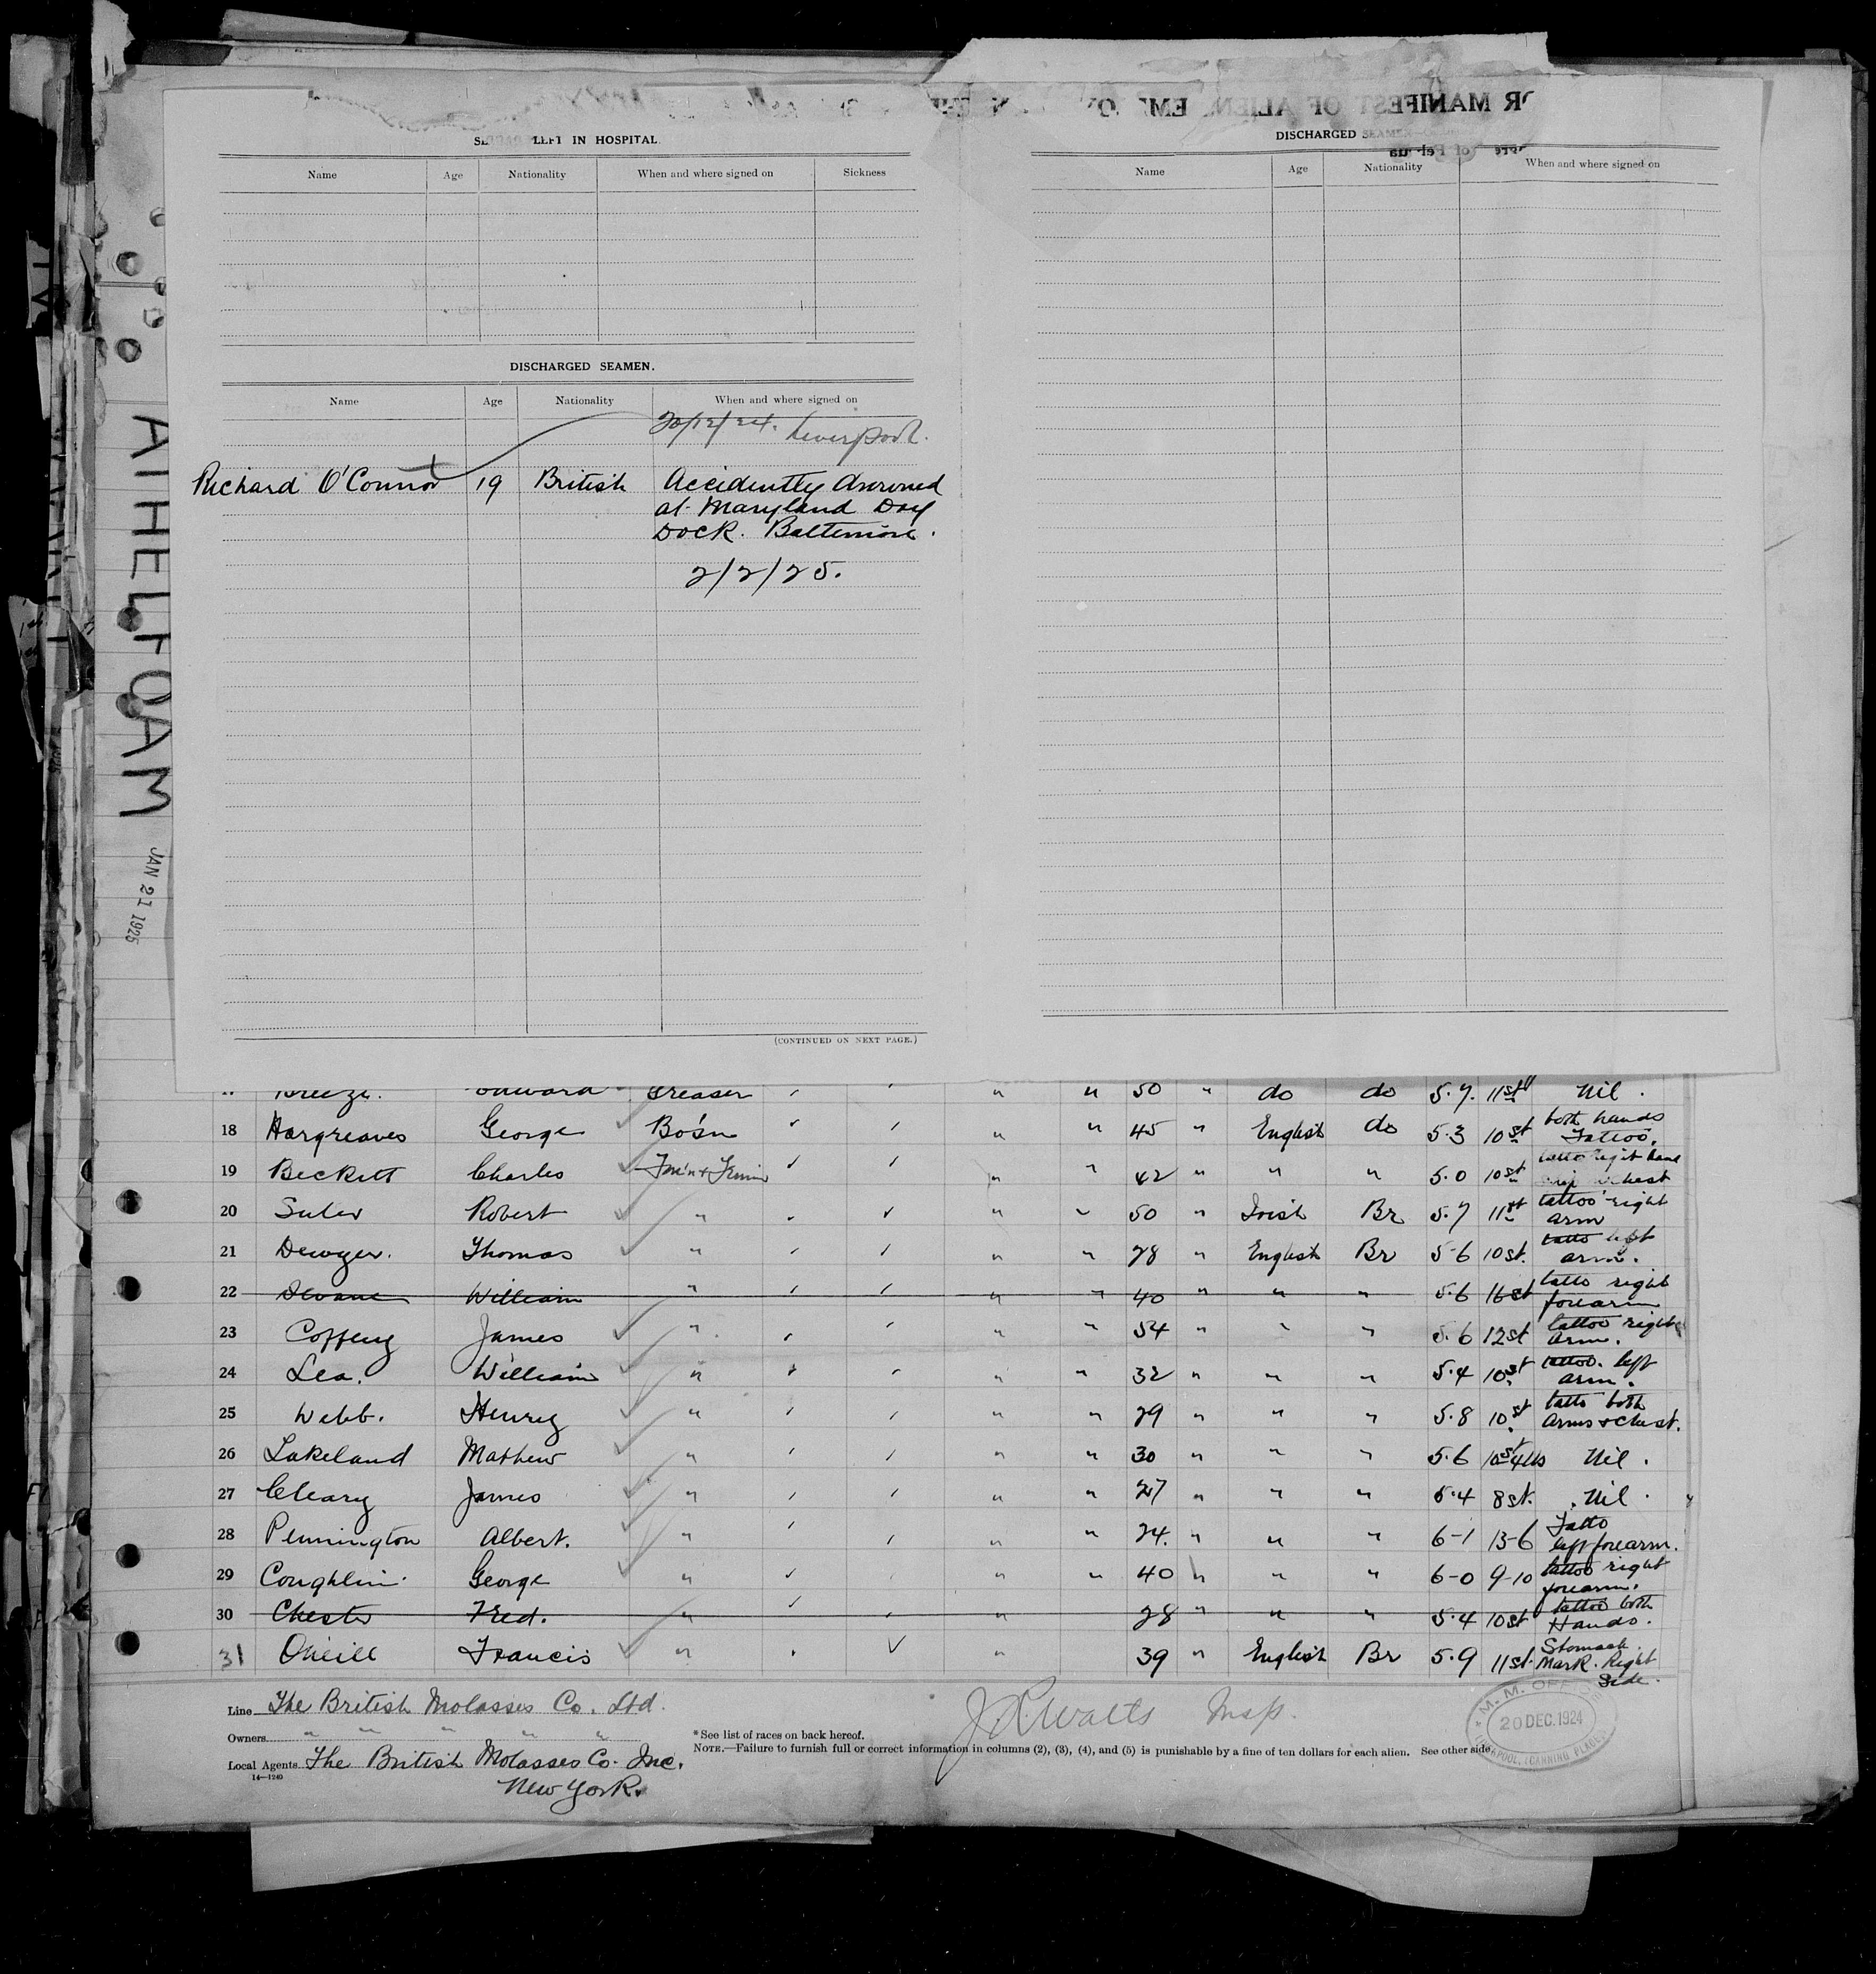 ATHELFOAM
JAN 21 1925
LEFT IN HOSPITAL
Name Age Nationality When and where signed on Sickness
DISCHARGED SEAMEN.
Name Age Nationality When and where signed on
20/12/24. Liverpool.
Richard O'Connor 19 British Accidently drowned
at Maryland Dry
Dock. Baltimore.
2/2/25.
(CONTINUED ON NEXT PAGE.)
DISCHARGED SEAMEN
Name Age Nationality When and where signed on
Breeze. Edward Greaser " " 50 " do do 5.7. 11st Nil.
18 Hargreaves George Bo'sn " " 45 " English do 5.3 10st both hands
Tattoo.
19 Beckett Charles " " 42 " " " 5.0 10st right hand
chest
20 Robert " " " 50 " Irish Br 5.7 11st tattoo right
arm
21 Thomas " " " 28 " English Br 5-6 10st. tatto left
arm.
22 William " " " 40 " " " 5.6 16st tatto right
forearm
23 James " " " 54 " " " 5.6 12st tattoo right
arm.
24 Lea. William " " " 32 " " " 5.4 10st tattoo. left
arm.
25 Webb. Henry " " " 29 " " " 5.8 10st tatto both
Arms & Chest.
26 Lakeland Mathew " " " 30 " " " 5.6 10st 4lbs Nil.
27 Cleary James " " " 27 " " " 5.4 8st. Nil.
28 Pennington Albert. " " " 24. " " " 6-1 13-6 Tatto
left forearm.
29 Coughlin. George " " " 40 " " " 6-0 9-10 tattoo right
forearm.
30 Chester Fred. " " 28 " " " 5.4 10st tattoo both
Hands.
31 Oneill Francis " " 39 " English Br 5.9 11st. Stomach.
Mark. Right
Side.
Line The British Molasses Co. Ltd.
Owners " " " " "
Local Agents The British Molasses Co. Inc.
14—1240
New York.
J R Watts Insp.
*See list of races on back hereof.
NOTE.—Failure to furnish full or correct information in columns (2), (3), (4), and (5) is punishable by a fine of ten dollars for each alien. See other side.
M. M. OFFICE
20 DEC. 1924
LIVERPOOL, (CANNING PLACE)